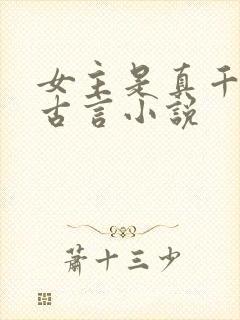 女主是真千
古言小说
萧十三少